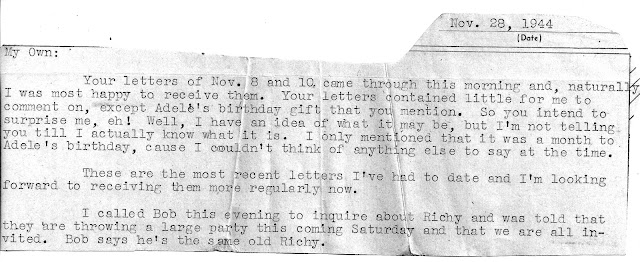 Nov. 28, 1944
(Date)
My Own:
Your letters of Nov. 8 and 10 came through this morning and, naturally,
I was most happy to receive them. Your letters contained little for me to
comment on, except Adele's birthday gift that you mention. So you intend to
surprise me, eh! Well, I have an idea of what it may be, but I'm not telling
you till I actually know what it is. I only mentioned that it was a month to
Adele's birthday, cause I couldn't think of anything else to say at the time.
These are the most recent letters I've had to date and I'm looking
forward to receiving them more regularly now.
I called Bob this evening to inquire about Richy and was told that
they are throwing a large party this coming Saturday and that we are all in-
vited. Bob says he's the same old Richy.